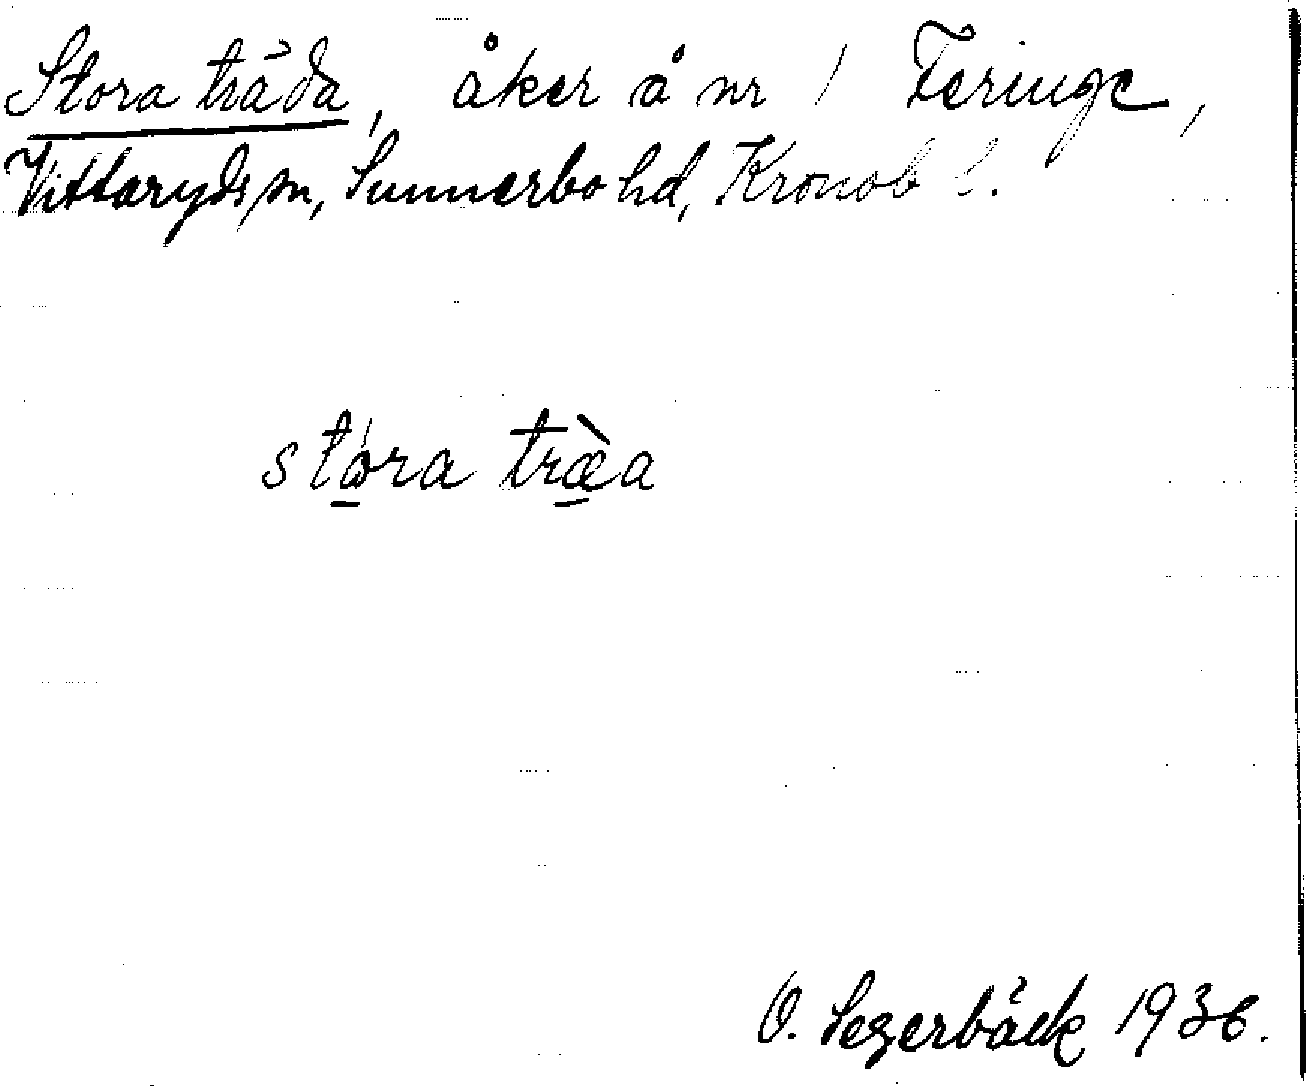 Stora träda, åker å nr 1 Feringe,
Vittaryds sn, Sunnerbo hd, Kronob l.
stóra træ̀a
O. Segerbäck 1936.